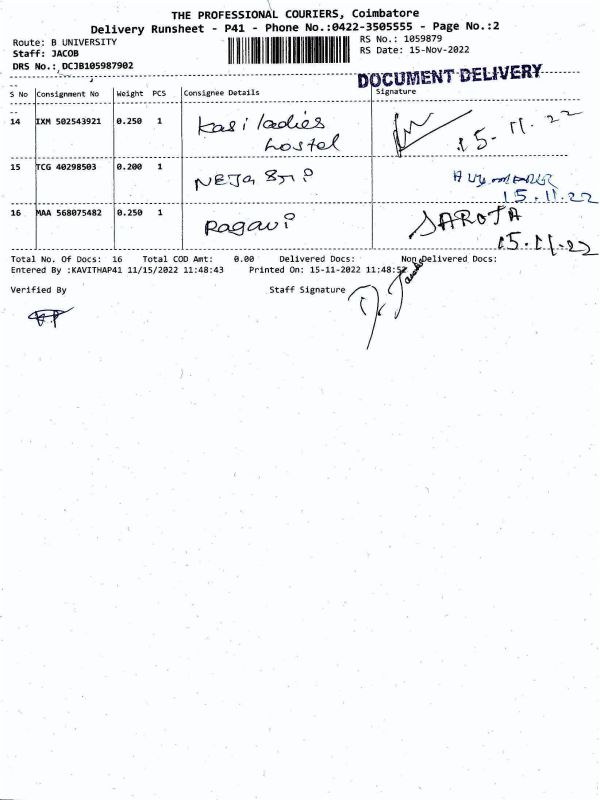 THE PROFESSIONAL COURIERS, Coimbatore
Delivery Runsheet - P41 - Phone No.:0422-3505555 - Page No.:2
Route: B UNIVERSITY
RS No.: 1059879
Staff: JACOB
RS Date: 15-Nov-2022
DRS No.: DCJB105987902
DOCUMENT DELIVERY
S No Consignment No Weight PCS Consignee Details Signature
14 IXM 502543921 0.250 1 Kasi ladies 15-11-22
hostel
15 TCG 40298503 0.200 1
15.11.22
16 MAA 568075482 0.250 1 Ragavi SAROJA
15.11.22
Total No. Of Docs: 16 Total COD Amt: 0.00 Delivered Docs: Non Delivered Docs:
Entered By :KAVITHAP41 11/15/2022 11:48:43 Printed On: 15-11-2022 11:48:52
Verified By Staff Signature